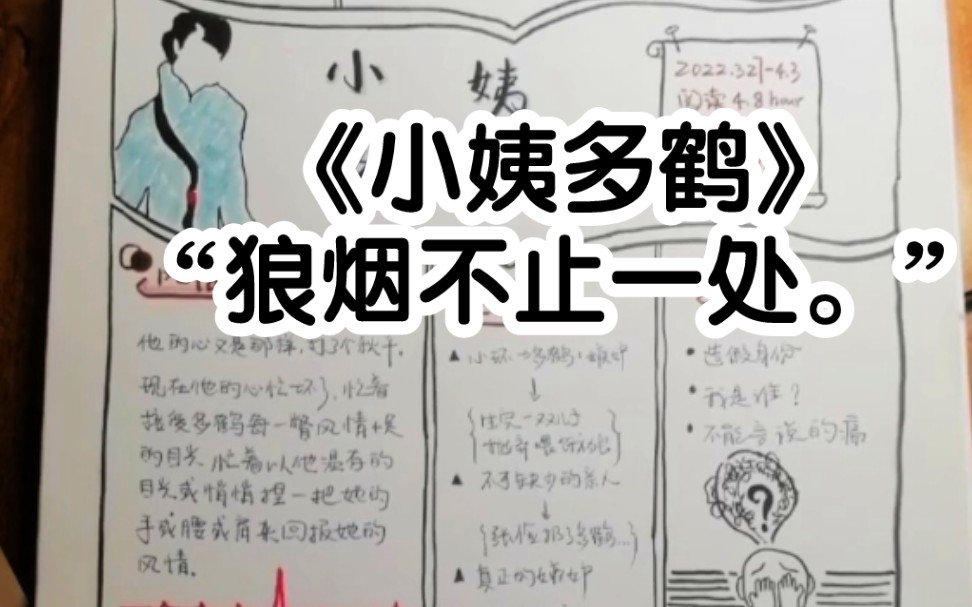 小 姨
2022.3.27-4.3
阅读 4.8 hour
《小姨多鹤》
“狼烟不止一处。”
他的心又是那样,打了个秋千。
现在他的心忙坏了,忙着
接受多鹤每一瞥风情十足
的目光,忙着以他温存的
目光或悄悄捏一把她的
手或腰或肩来回报她的
风情。
▲小环→多鹤:嫉妒
↓
▲不可缺少的亲人
↓
▲真正的姐妹
• 造假身份
• 我是谁?
• 不能言说的痛
?